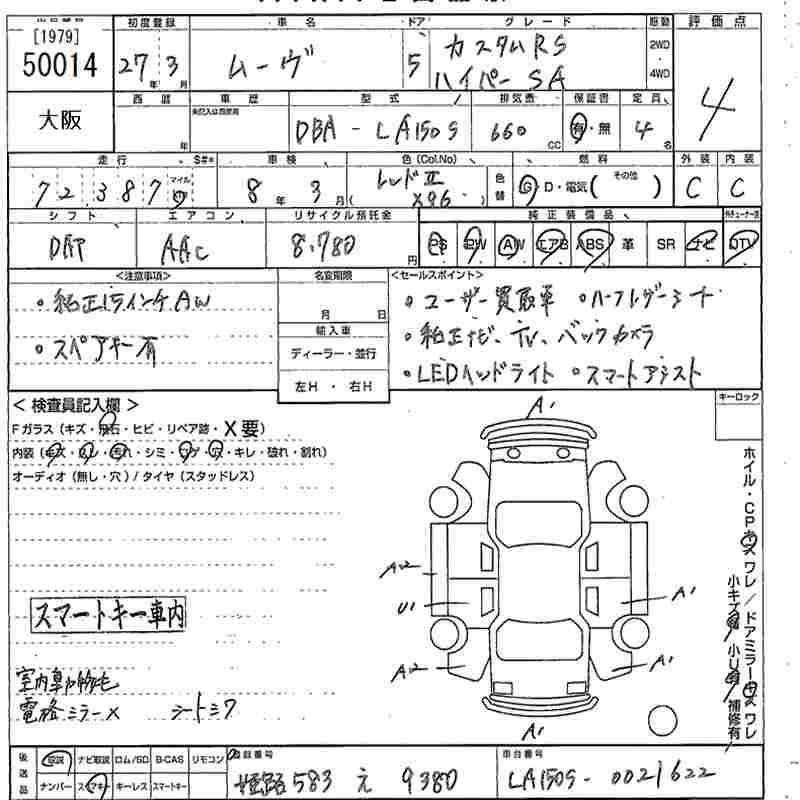 [1979]
50014
大阪
初度登録 車名 ドア グレード 駆動 評価点
27年3月 ムーヴ 5 カスタムRS ハイパーSA 2WD・4WD 4
西暦 年 車歴 型式 排気量 保証書 定員
未記入は自家用
DBA-LA150S 660CC 有・無 4名
走行 S#* 車検 色(Col.No) 色替 燃料 外装 内装
72,387 マイル km 8年3月 レッドⅡ ( X96 ) G・D・電気( その他 ) C C
シフト エアコン リサイクル預託金 純正装備品
DAT AAC 8,780円 PS PW AW エアB ABS 革 SR ナビ DTV
<注意事項> 名変期限 <セールスポイント>
・純正15インチAW 月 日 ・ユーザー買取車 ・ハーフレザーシート
輸入車 ・純正ナビ、TV、バックカメラ
・スペアキー有 ディーラー・並行
左H・右H ・LEDヘッドライト ・スマートアシスト
<検査員記入欄> キーロック
Fガラス(キズ・飛石・ヒビ・リペア跡・X要)
内装(キズ・スレ・汚れ・シミ・コゲ・穴・キレ・破れ・割れ)
オーディオ(無し・穴)/タイヤ(スタッドレス)
A1
A2
U1 A1
A2 A1
A1
ホイル・CPキズワレ/ドアミラーキズワレ
小キズ有 小U有 補修有
スマートキー車内
電格ミラー× シートシワ
後送品 取説 ナビ取説 ロム/SD B-CAS リモコン 登録番号 車台番号
ナンバー スペアキー キーレス スマートキー 姫路 583 え 9380 LA150S-0021622